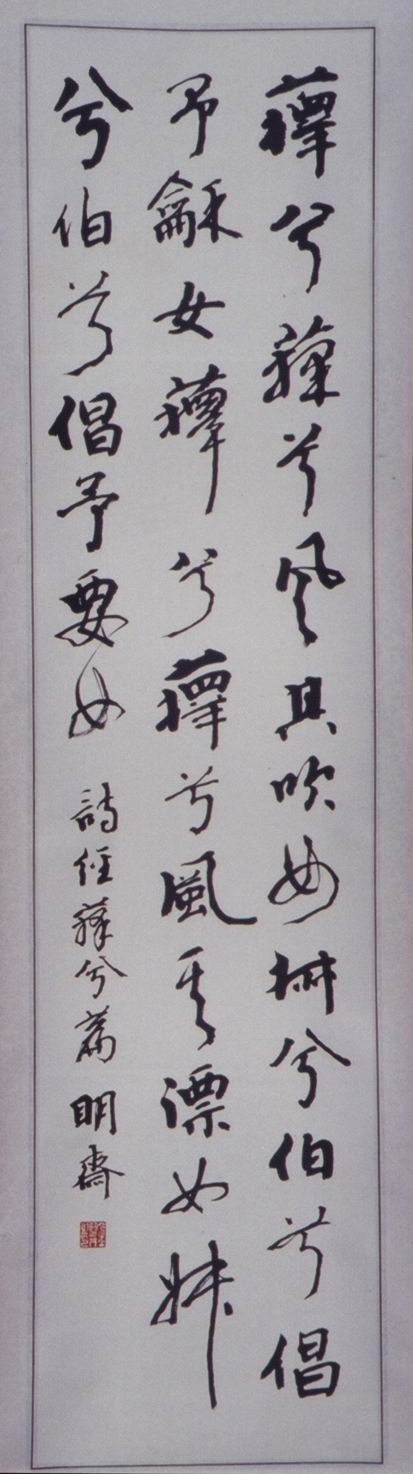 蘀兮蘀兮風其吹女叔兮伯兮倡
予龢女蘀兮蘀兮風其漂女叔
兮伯兮倡予要女 詩經蘀兮篇 明齋